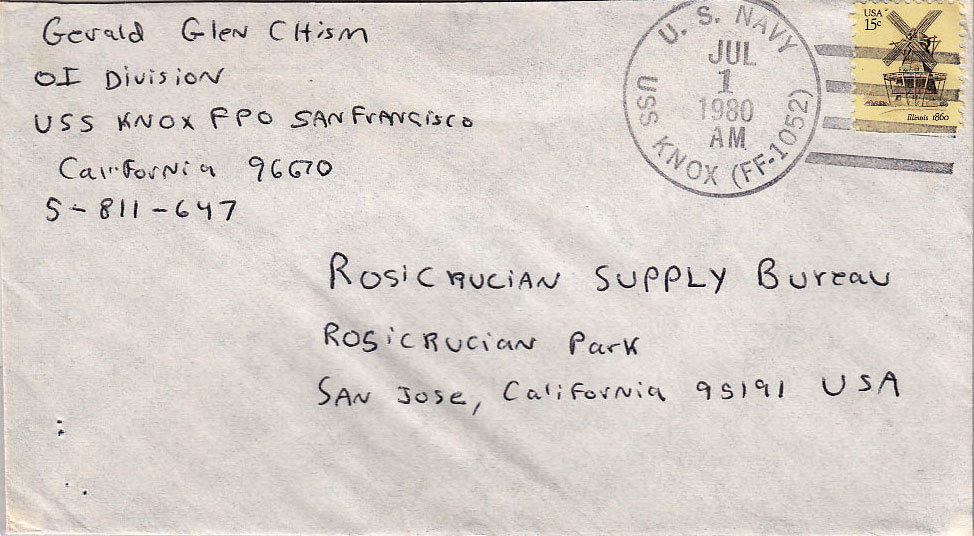 Gerald Glen CHism
OI Division
USS KNOX FPO SANFrancisco
California 96670
S-811-647
U. S. NAVY
JUL
1
1980
AM
USS KNOX (FF-1052)
USA
15c
Illinois 1860
ROSiCRUCIAN SUPPLY Bureau
ROSiCRUCian Park
SAN JOSE, California 95191 USA